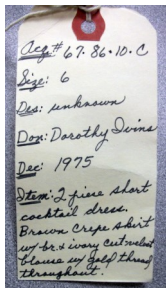 Acq# 67.86.10.C
Size: 6
Des: unknown
Don: Dorothy Ivins
Dec: 1975
Item: 2 piece short
cocktail dress.
Brown Crepe skirt
w/br. & ivory cut velvet
blouse w/gold thread
throughout.